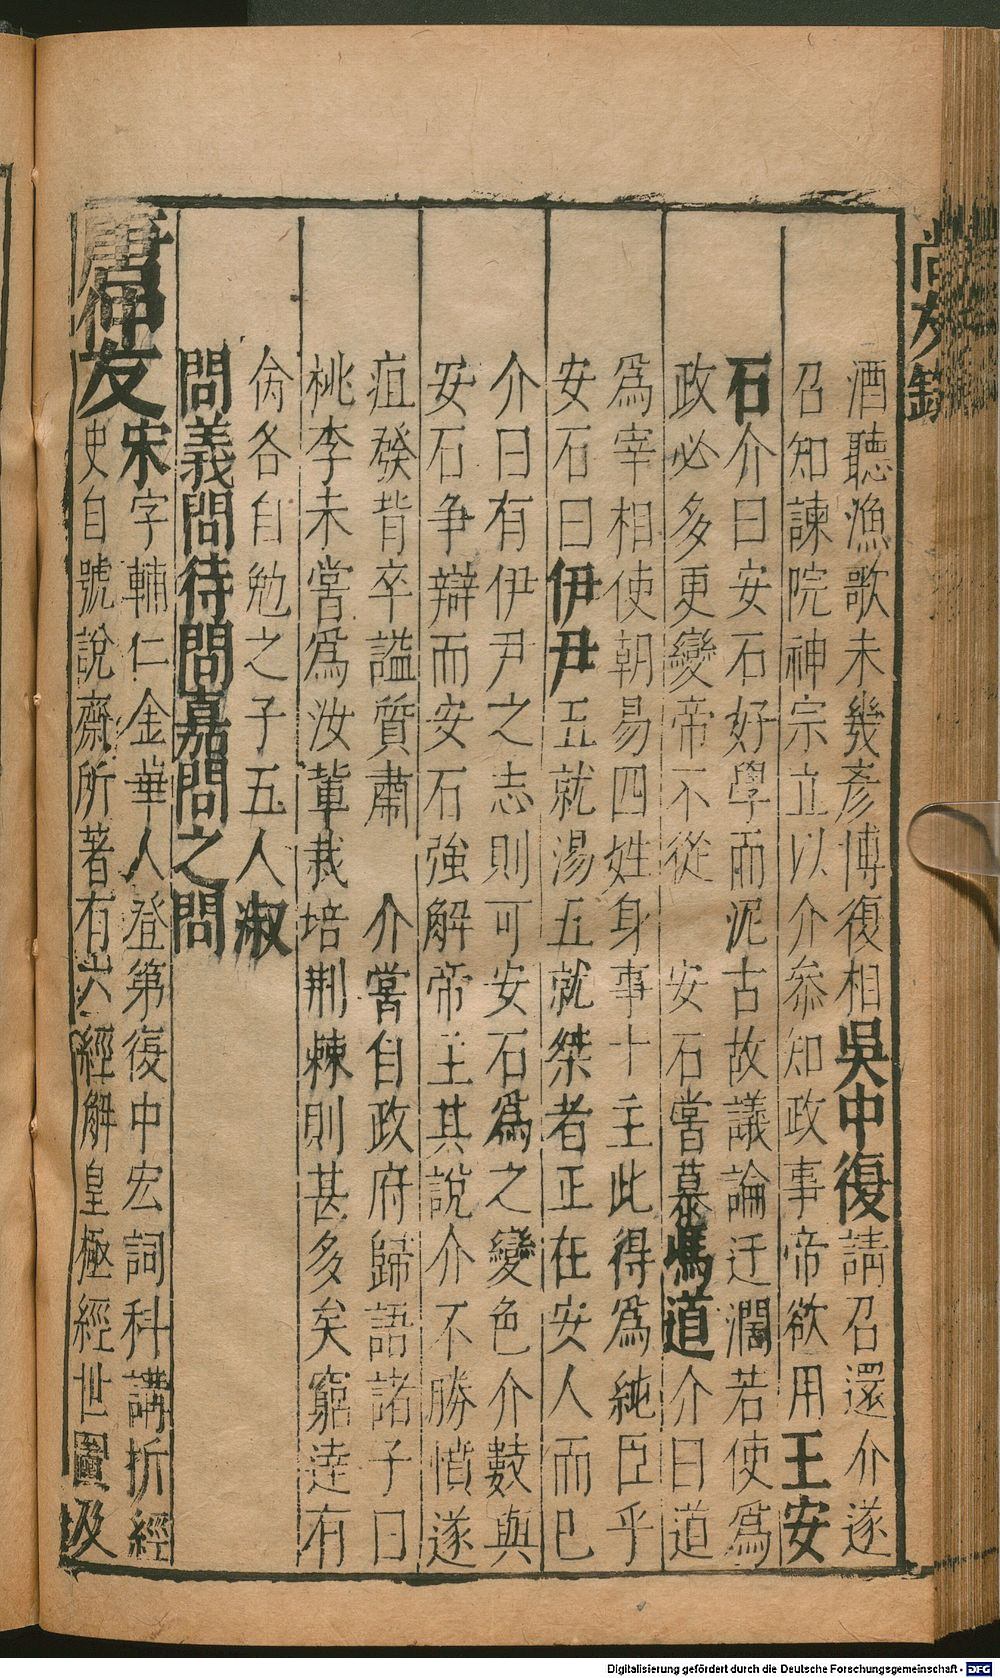 尚友錄
酒聽漁歌未幾彥博復相吳中復請召還介遂
召知諫院神宗立以介參知政事帝欲用王安
石介曰安石好學而泥古故議論迂濶若使爲
政必多更變帝不從　安石嘗慕馮道介曰道
爲宰相使朝易四姓身事十主此得爲純臣乎
安石曰伊尹五就湯五就桀者正在安人而已
介曰有伊尹之志則可安石爲之變色介數與
安石爭辯而安石強解帝主其說介不勝憤遂
疽發背卒謚質肅　介嘗自政府歸語諸子曰
桃李未嘗爲汝輩栽培荆棘則甚多矣窮達有
命各自勉之子五人淑
問義問待問嘉問之問
唐仲友宋字輔仁金華人登第復中宏詞科講折經
史自號說齋所著有六經解皇極經世圖及
Digitalisierung gefördert durch die Deutsche Forschungsgemeinschaft - DFG